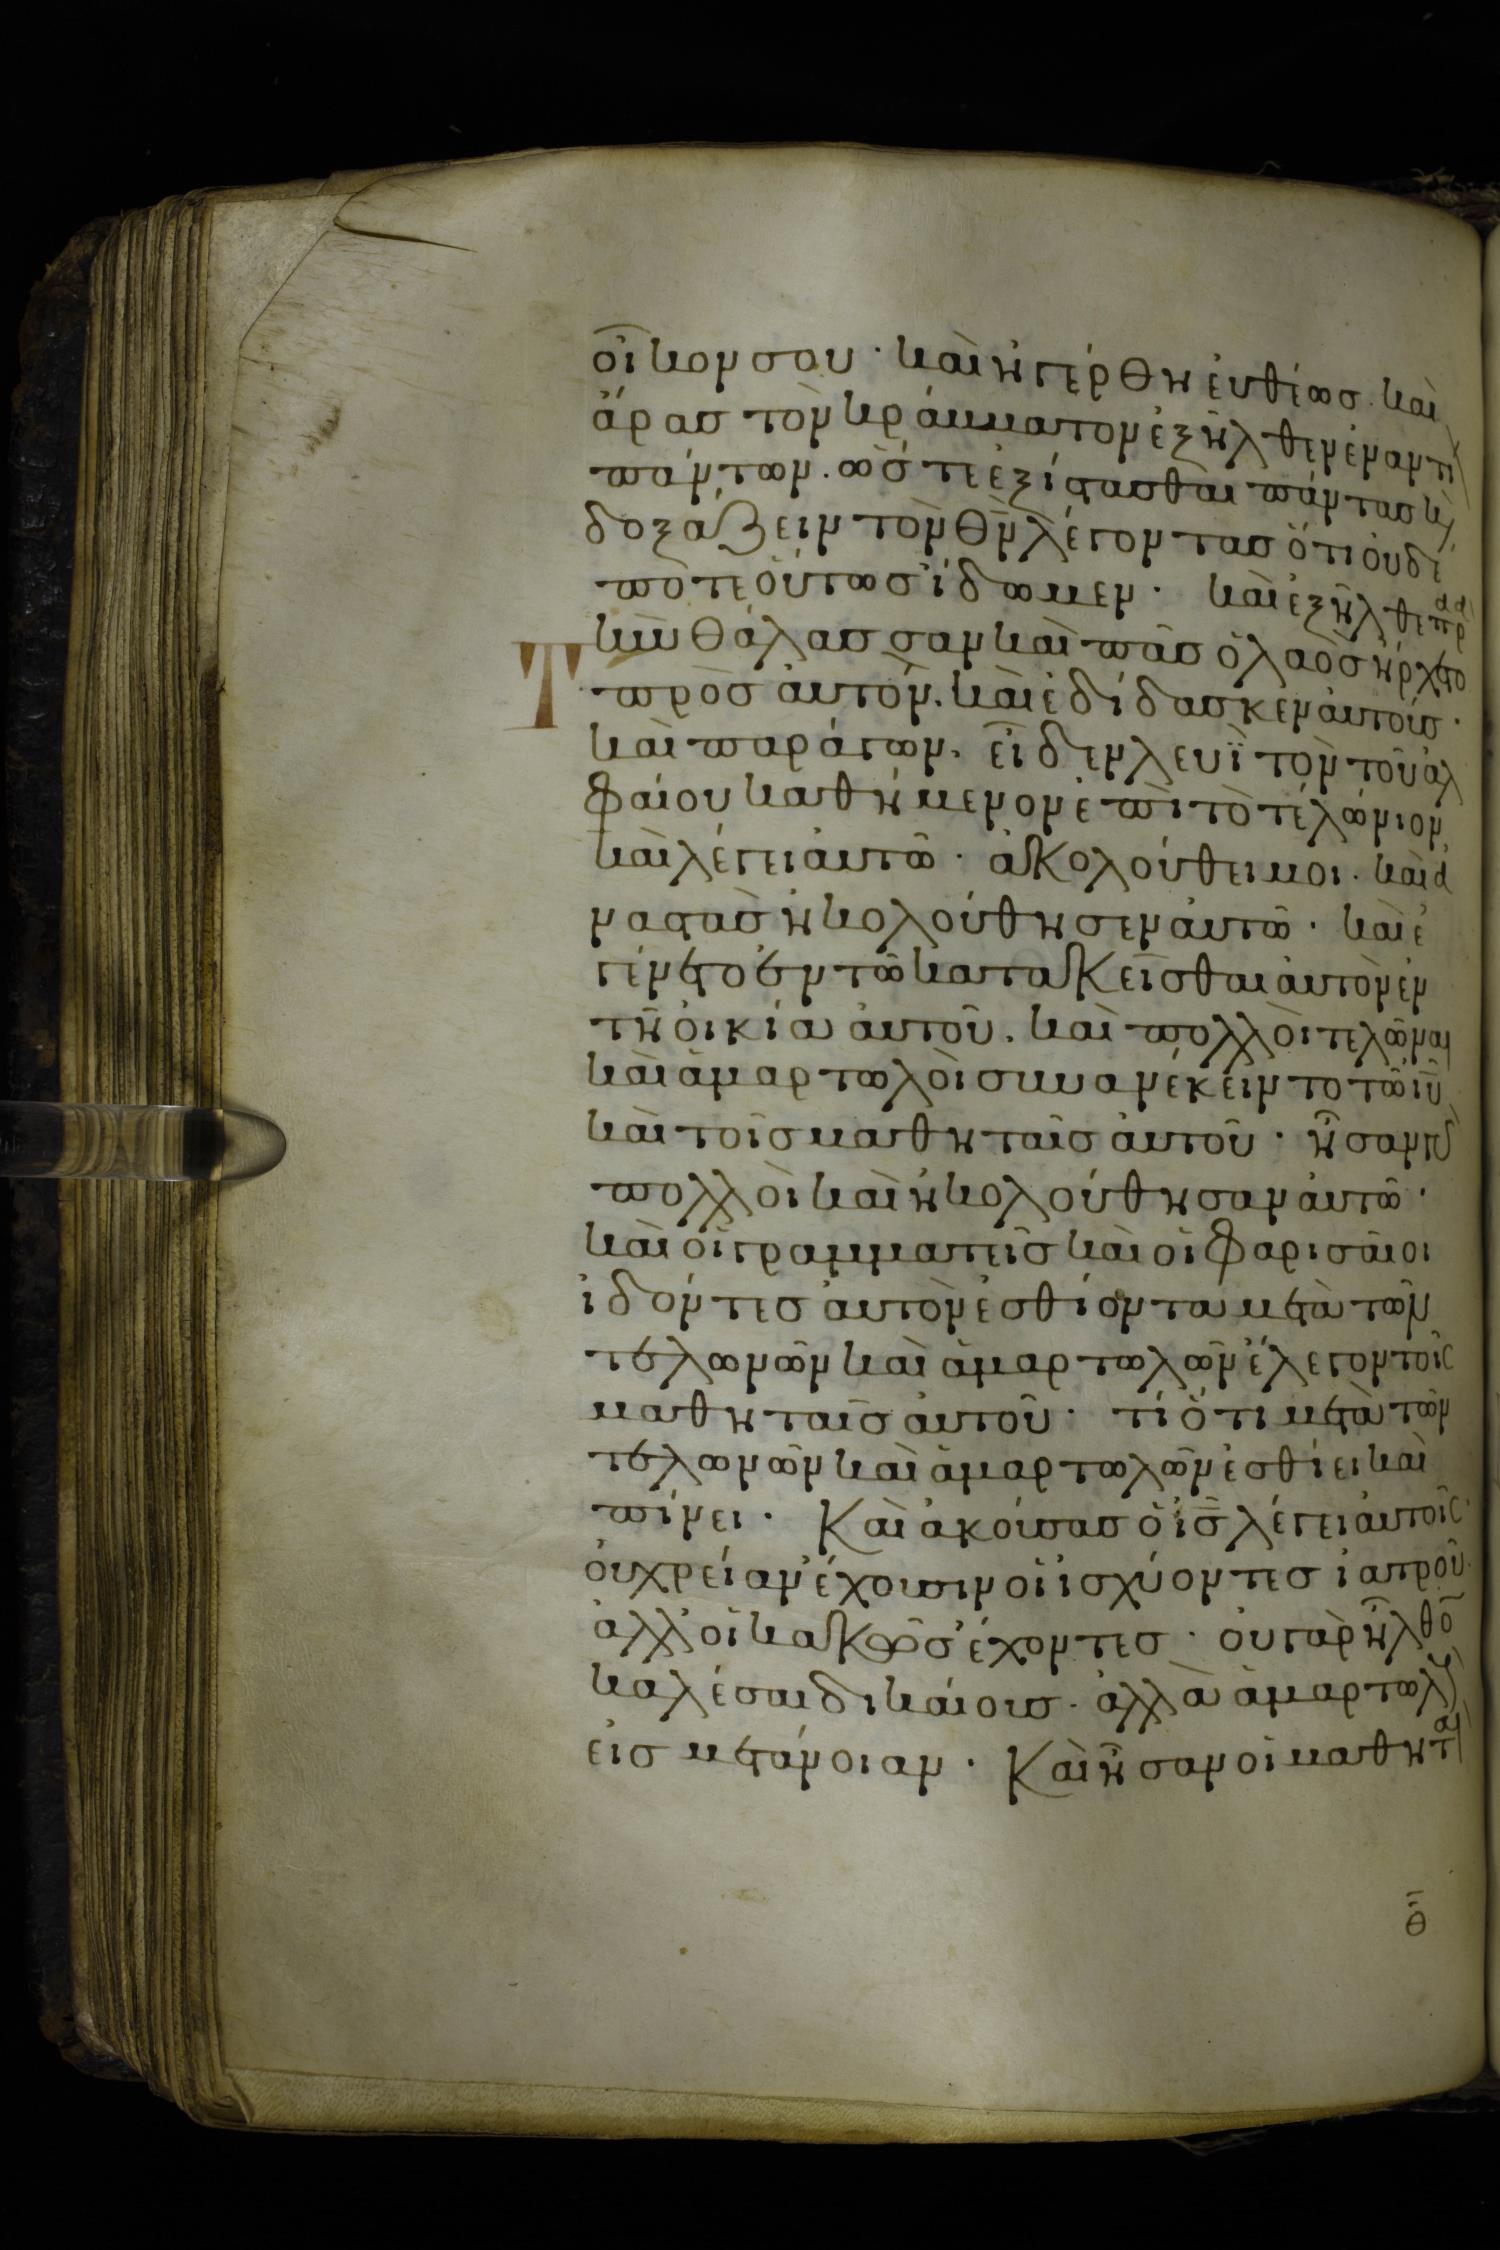 οἶκον σου · καὶ ἠγέρθη ἐυθέως · καὶ
ἄρας τὸν κράμματον ἐξῆλθεν ἐναντί
πάντων · ὥστε ἐξίστασθαι πάντας κ(
δοξάζειν τὸν θ̅ν̅ λέγοντας ὅτι ὀυδέ
ποτε ὅυτως ἴδωμεν · καὶ ἐξῆλθε πρα
Τ κὺυ θάλασσαν καὶ πᾶς ὁ λαὸς ἤρχετο
πρὸς ἀυτόν · καὶ ἐδίδασκεν ἀυτοίς ·
καὶ παράγων · εἶδεν λευῒ τὸν τοῦ ἀλ
φαίου καθήμενον ἐπὶ τὸ τελώνιον
καὶ λέγει ἀυτῶ · ἀκολούθει μοι · καὶ ἀ
ναστὰς ἠκολούθησεν ἀυτῶ · καὶ ἐ
γένετο ἐν τῶ κατακεῖσθαι ἀυτὸν ἐν
τῆ ὀικία ἀυτοῦ · καὶ πολλὸι τελῶναι
καὶ ἁμαρτωλὸι συνανέκειντο τῶ ι̅υ̅
καὶ τοῖς μαθηταῖς ἀυτοῦ · ἦσαν γ(
πολλὸι καὶ ἠκολούθησαν ἀυτῶ ·
καὶ οἱ γραμματεῖς καὶ οἱ φαρισαῖοι
ἰδόντες ἀυτὸν ἐσθίοντα μετὰ τῶν
τελωνῶν καὶ ἁμαρτωλῶν ἔλεγον τοῖς
μαθηταῖς ἀυτοῦ · τί ὅτι μετὰ τῶν
τελωνῶν καὶ ἁμαρτωλῶν ἐσθίει καὶ
πίνει · Καὶ ἀκούσας ὁ ι̅ς̅ λέγει ἀυτοῖς ·
ὀυ χρείαν ἔχουσιν οἱ ἰσχύοντες ἰατροῦ ·
ἀλλ' οἱ κακῶς ἔχοντες · ὀυ γὰρ ἦλθο̅
καλέσαι δικαίους · ἀλλὰ ἁμαρτωλ(
εἰς μετάνοιαν · Καὶ ἦσαν οἱ μαθηταὶ
θ̅